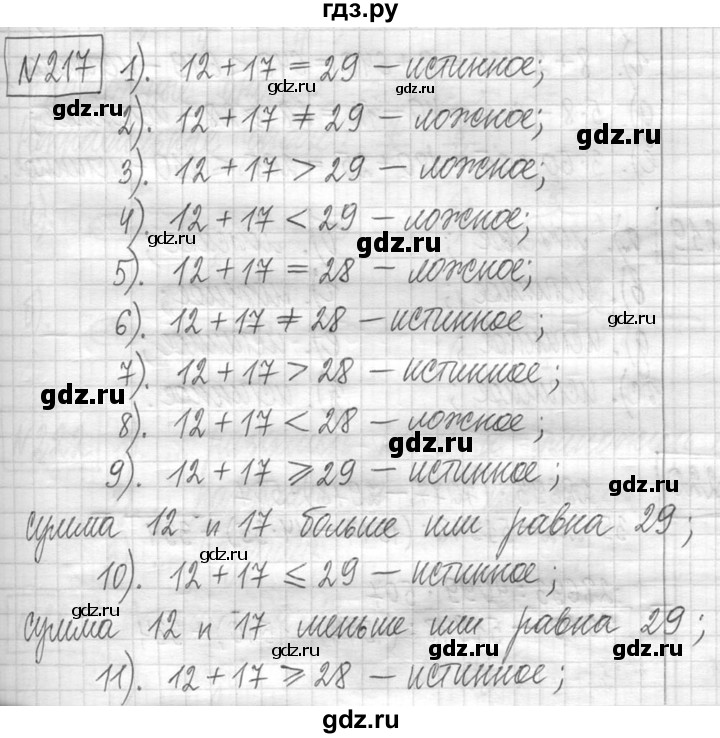 гдз.ру
№217 1). 12+17 = 29 – истинное;
gdz.ru gdz.ru
gdz.ru
2). 12+17 ≠ 29 – ложное;
gdz.ru
3). 12+17 > 29 – ложное;
4). 12+17 < 29 – ложное;
gdz.ru gdz.ru
5). 12+17 = 28 – ложное;
6). 12+17 ≠ 28 – истинное;
gdz.ru
7). 12+17 > 28 – истинное;
gdz.ru
8). 12+17 < 28 – ложное;
gdz.ru
9). 12+17 ⩾ 29 – истинное;
gdz.ru
сумма 12 и 17 больше или равна 29;
gdz.ru
10). 12+17 ⩽ 29 – истинное;
gdz.ru
сумма 12 и 17 меньше или равна 29;
gdz.ru gdz.ru gdz.ru
11). 12+17 ⩾ 28 – истинное;
gdz.ru